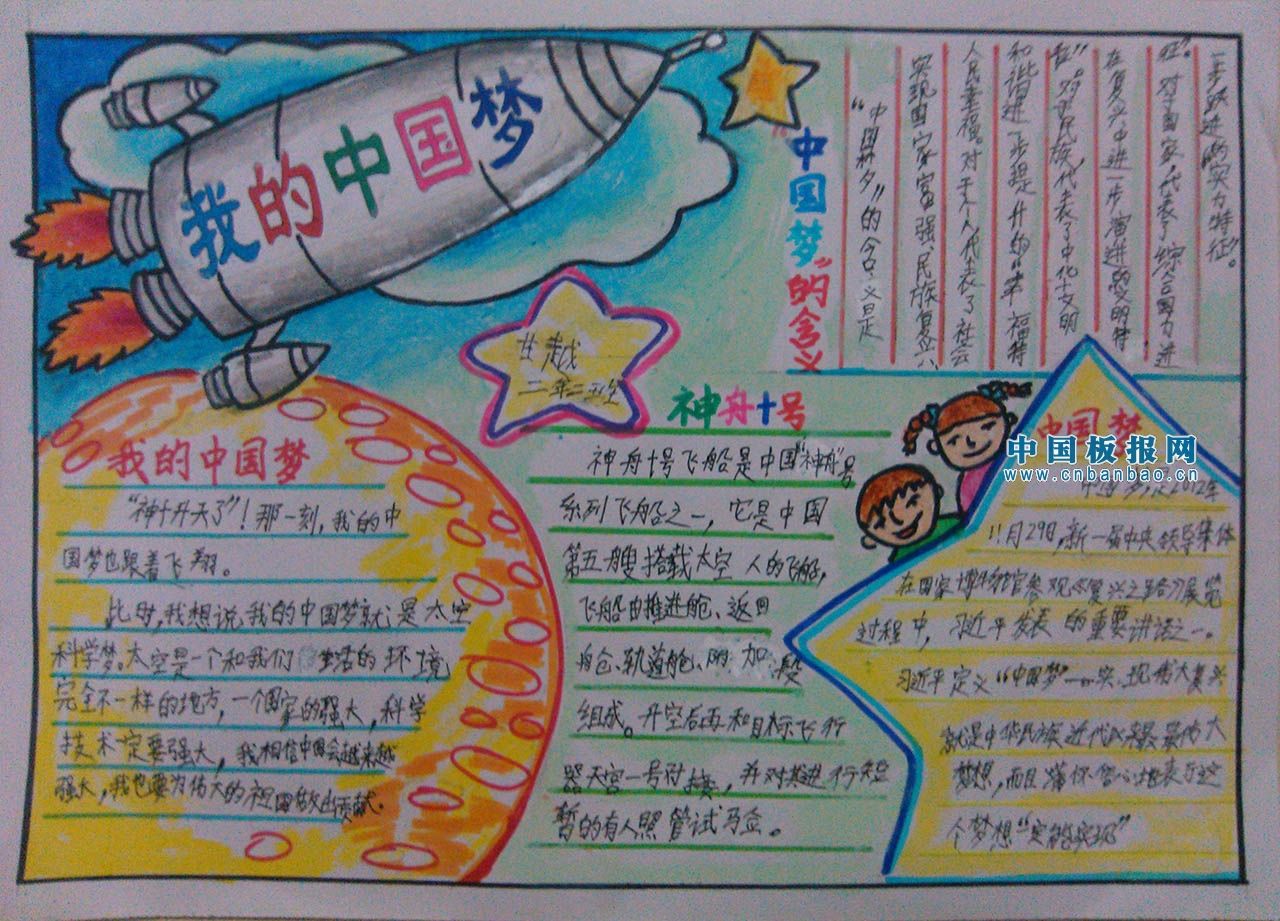 我的中国梦
"中国梦"的含义
"中国梦"的含义是
实现国家富强、民族复兴、
人民幸福。对于个人代表了社会
和谐进一步提升的"幸福特
征"对于民族,代表了中华文明
在复兴中进一步演进的"文明特
征"。对于国家,代表了综合国力进
一步跃进的"实力特征"。
甘越
二年二班
我的中国梦
"神十升天了"!那一刻,我的中
国梦也跟着飞翔。
此时,我想说,我的中国梦就是太空
科学梦。太空是一个和我们生活的环境
完全不一样的地方,一个国家的强大,科学
技术一定要强大,我相信中国会越来越
强大,我也要为伟大的祖国做出贡献。
神舟十号
神舟十号飞船是中国"神舟"号
系列飞船之一,它是中国
第五艘搭载太空人的飞船,
飞船由推进舱、返回
舱、轨道舱、附加段
组成。升空后再和目标飞行
器天宫一号对接,并对其进行短
暂的有人照管试
中国梦
中国板报网
www.cnbanbao.cn
2012年
11月29日,新一届中央领导集体
在国家博物馆参观《复兴之路》展览
过程中,习近平发表的重要讲话之一。
习近平定义"中国梦"—实现伟大复兴
就是中华民族近代以来最伟大
梦想,而且满怀信心地表示这
个梦想"实能实现"